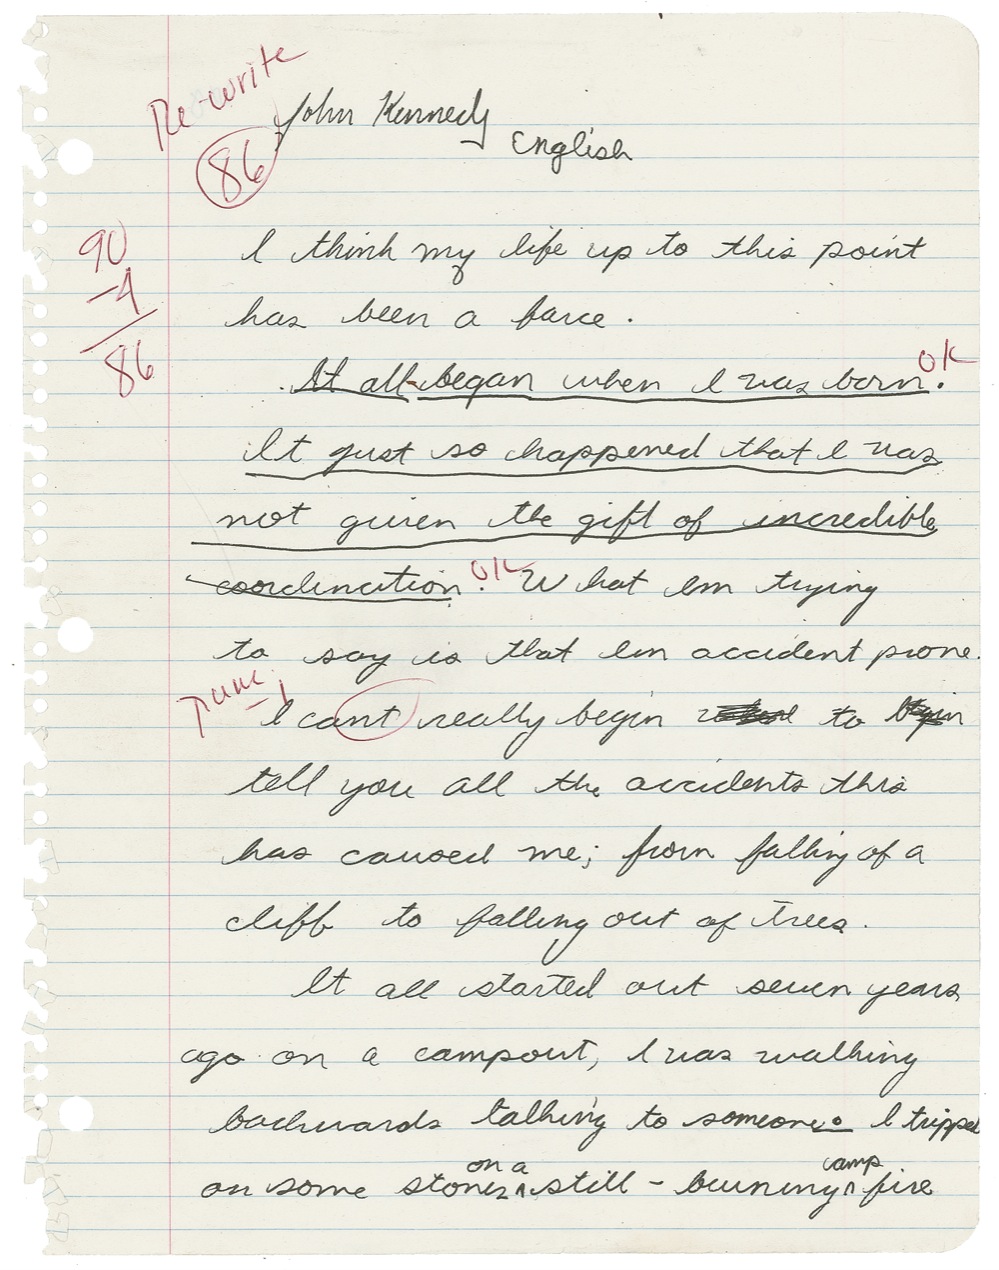 Re-write
John Kennedy
86
English
90
-4
86
I think my life up to this point
has been a farce.
It all began when I was born. OK
It just so happened that I was
not given the gift of incredible
coordination. OK What Im trying
to say is that Im accident prone.
Punc. -1
I cant really begin to
tell you all the accidents this
has caused me; from falling of a
cliff to falling out of trees.
It all started out seven years
ago on a campout, I was walking
backwards talking to someone. I tripped
on some stones on a still-burning camp fire